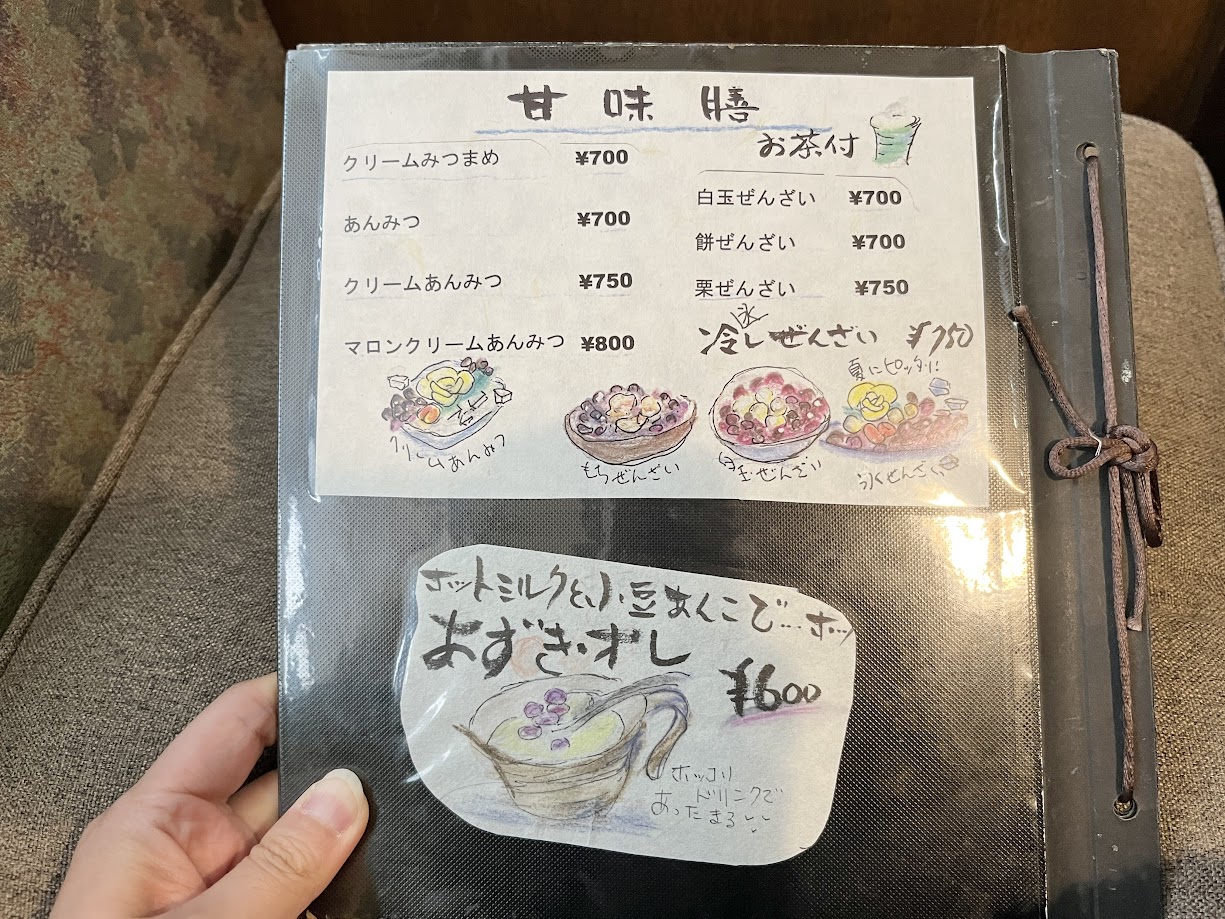 甘味膳
お茶付
クリームみつまめ ¥700
あんみつ ¥700
クリームあんみつ ¥750
マロンクリームあんみつ ¥800
白玉ぜんざい ¥700
餅ぜんざい ¥700
栗ぜんざい ¥750
氷
冷しぜんざい ¥750
夏にピッタリ!
クリームあんみつ
もちぜんざい
白玉ぜんざい
氷ぜんざい
ホットミルクと小豆あんこで…ホッ
あずき・オレ
¥600
ホッコリ
ドリンクで
あったまる